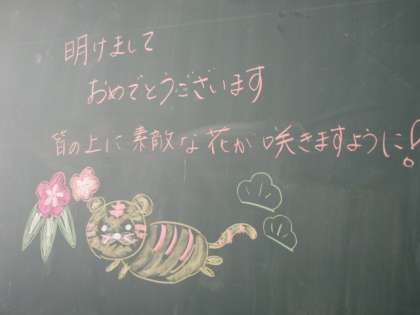 明けまして
おめでとうございます
皆の上に素敵な花が咲きますように!